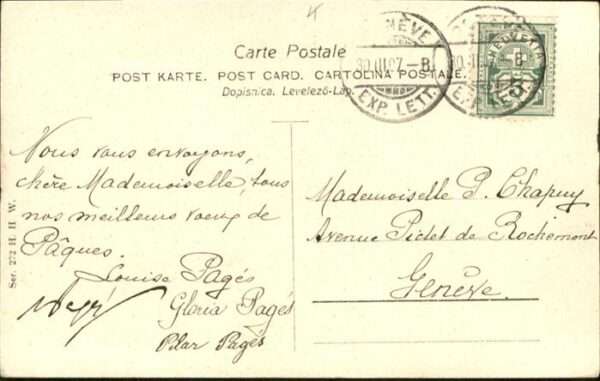 Carte Postale
POST KARTE. POST CARD. CARTOLINA POSTALE.
Dopisnica. Levelező-Lap.
GENÈVE
30.III.07.–8
EXP. LETT.
HELVETIA
5
Nous vous envoyons,
chère Mademoiselle, tous
nos meilleurs voeux de
Pâques.
Louise Pagés
Gloria Pagés
Pilar Pagés
Mademoiselle P. Chapuy
Avenue Pictet de Rochemont
Genève.
Ser. 272 H. H. W.